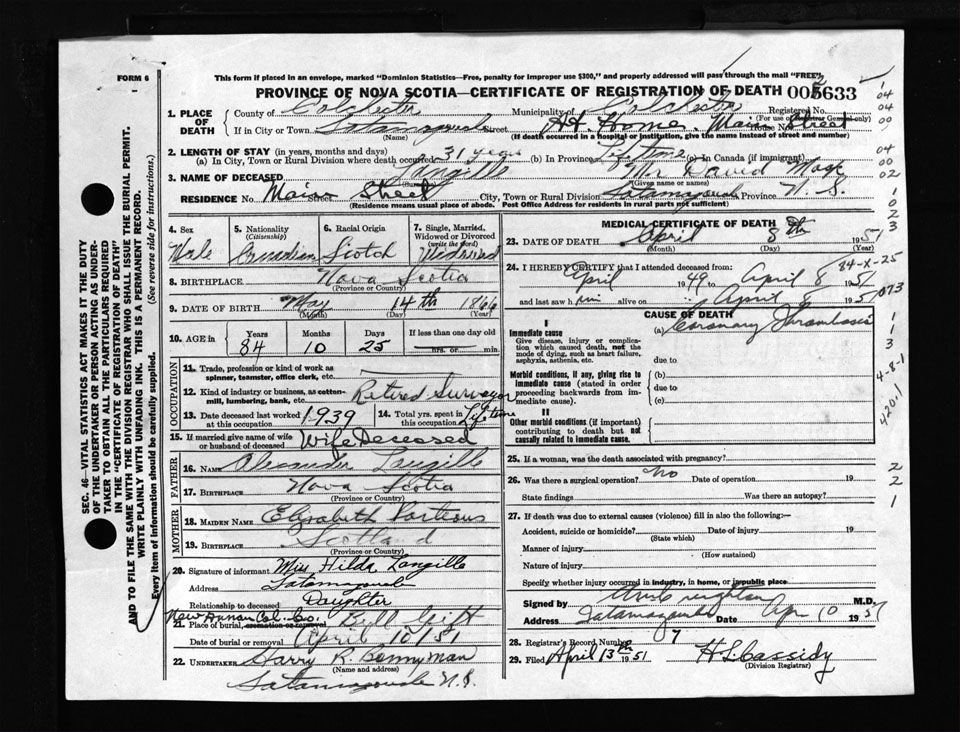 FORM 6
This form if placed in an envelope, marked "Dominion Statistics—Free, penalty for improper use $300," and properly addressed will pass through the mail "FREE".
PROVINCE OF NOVA SCOTIA—CERTIFICATE OF REGISTRATION OF DEATH 005633
1. PLACE OF DEATH
County of Colchester Municipality of Colchester Registered No.
(For use of Registrar General only)
If in City or Town Tatamagouche Street At Home, Main Street House No.
(Name) (If death occurred in a hospital or institution, give the name instead of street and number)
2. LENGTH OF STAY (in years, months and days)
(a) In City, Town or Rural Division where death occurred 31 years (b) In Province Lifetime (c) In Canada (if immigrant)
3. NAME OF DECEASED Langille Mr. David
(Surname) (Given name or names)
RESIDENCE No. Main Street Street City, Town or Rural Division Tatamagouche Province N. S.
(Residence means usual place of abode. Post Office Address for residents in rural parts not sufficient)
4. Sex
Male
5. Nationality
(Citizenship)
Canadian
6. Racial Origin
Scotch
7. Single, Married, Widowed or Divorced
(write the word)
Widowed
8. BIRTHPLACE Nova Scotia
(Province or Country)
9. DATE OF BIRTH May 14th 1866
(Month) (Day) (Year)
10. AGE in
Years Months Days If less than one day old
84 10 25 hrs. or min.
OCCUPATION
11. Trade, profession or kind of work as spinner, teamster, office clerk, etc.
12. Kind of industry or business, as cotton-mill, lumbering, bank, etc. Retired Surveyor
13. Date deceased last worked at this occupation 1939
14. Total yrs. spent in this occupation Lifetime
15. If married give name of wife or husband of deceased Wife Deceased
FATHER
16. NAME Alexander Langille
17. BIRTHPLACE Nova Scotia
(Province or Country)
MOTHER
18. MAIDEN NAME Elizabeth Porteous
19. BIRTHPLACE Scotland
(Province or Country)
20. Signature of informant Miss Hilda Langille
Address Tatamagouche
Relationship to deceased Daughter
New Annan Col. Co.
21. Place of burial, cremation or removal
Date of burial or removal April 10/51
22. UNDERTAKER Harry R. Bonnyman
(Name and address)
Tatamagouche N.S.
MEDICAL CERTIFICATE OF DEATH
23. DATE OF DEATH April 8th 1951
(Month) (Day) (Year)
24. I HEREBY CERTIFY that I attended deceased from:
April 1949 to April 8 1951
and last saw him alive on April 8 1951
CAUSE OF DEATH
I
Immediate cause
Give disease, injury or complication which caused death, not the mode of dying, such as heart failure, asphyxia, asthenia, etc.
(a) Coronary Thrombosis
due to
Morbid conditions, if any, giving rise to immediate cause (stated in order proceeding backwards from immediate cause).
(b)
due to
(c)
II
Other morbid conditions (if important) contributing to death but not causally related to immediate cause.
25. If a woman, was the death associated with pregnancy?
26. Was there a surgical operation? no Date of operation 19
State findings Was there an autopsy?
27. If death was due to external causes (violence) fill in also the following:—
Accident, suicide or homicide? Date of injury 19
(State which)
Manner of injury
(How sustained)
Nature of injury
Specify whether injury occurred in industry, in home, or in public place
Signed by M.D.
Address Tatamagouche Date Apr 10 1951
28. Registrar's Record Number 7
29. Filed April 13th 1951 H. L. Cassidy
(Division Registrar)
SEC. 46—VITAL STATISTICS ACT MAKES IT THE DUTY
OF THE UNDERTAKER OR PERSON ACTING AS UNDER-
TAKER TO OBTAIN ALL THE PARTICULARS REQUIRED
IN THE "CERTIFICATE OF REGISTRATION OF DEATH"
AND TO FILE THE SAME WITH THE DIVISION REGISTRAR WHO SHALL ISSUE THE BURIAL PERMIT.
WRITE PLAINLY WITH UNFADING INK. THIS IS A PERMANENT RECORD.
Every item of information should be carefully supplied. (See reverse side for instructions.)
04
04
09
04
00
02
1
0
2
3
84-X-25
073
1
1
3
4-8-1
420.1
2
2
1